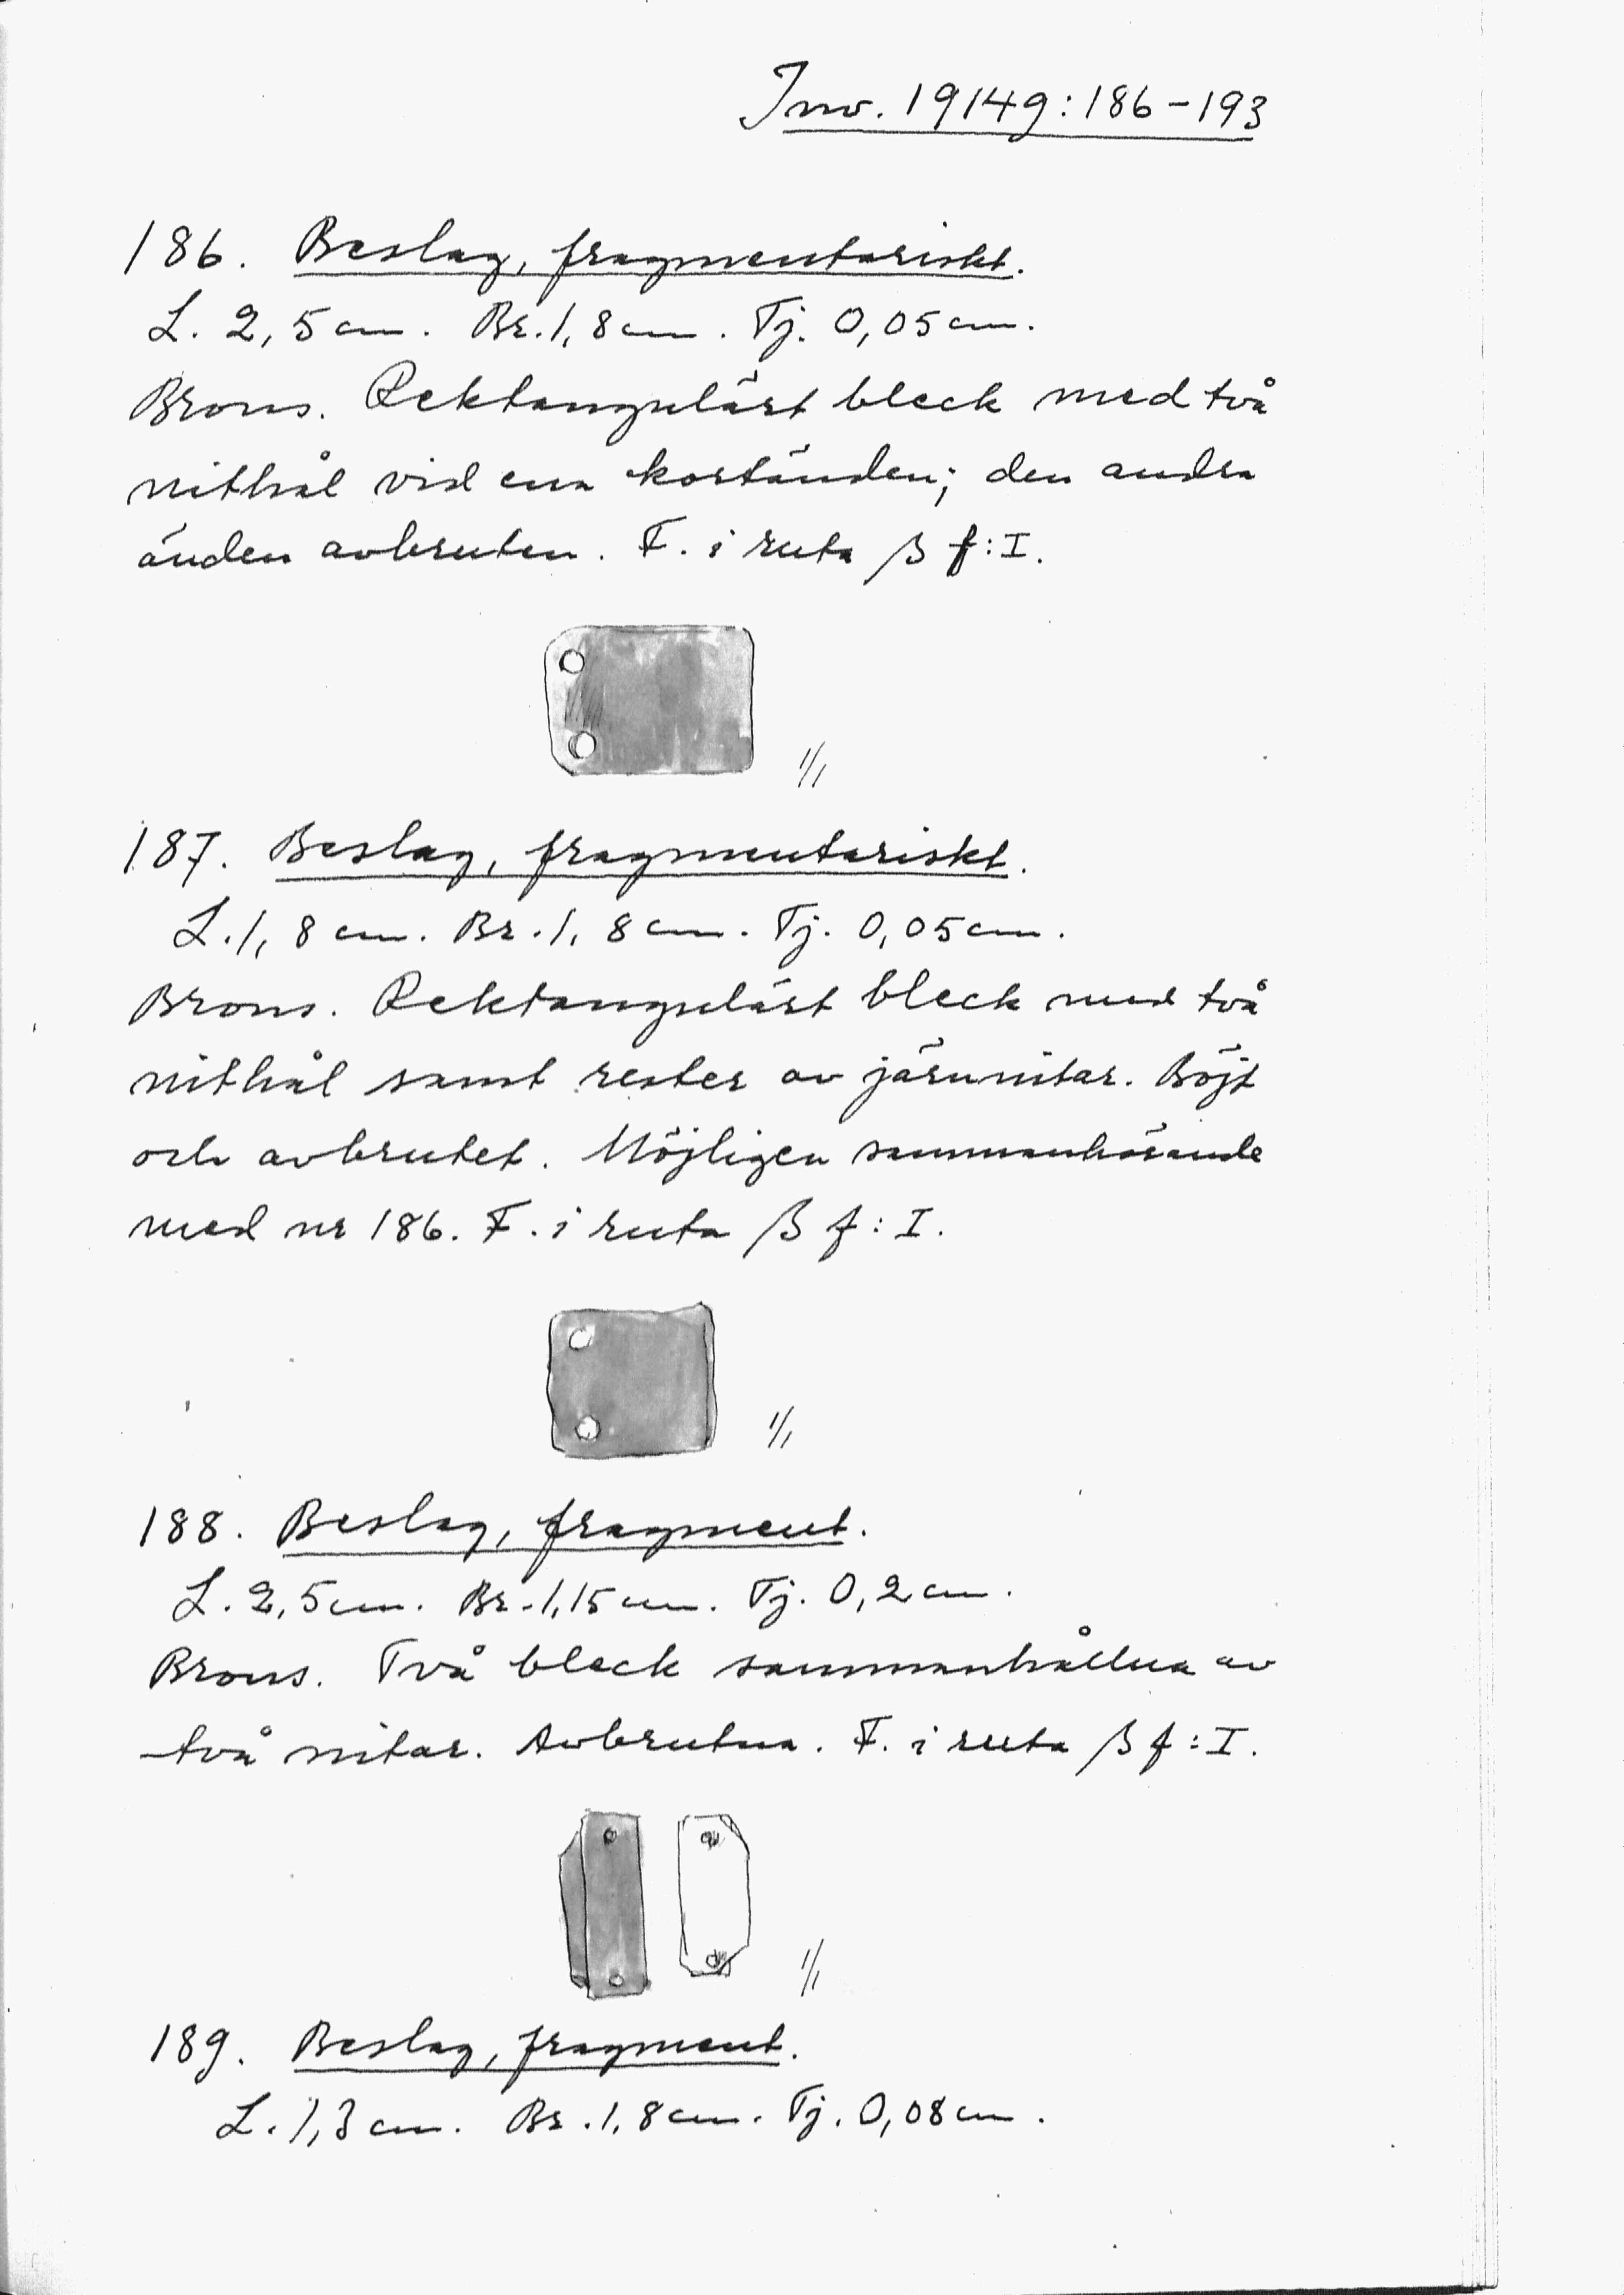 Inv. 19149:186-193
186. Beslag, fragmentariskt.
L. 2,5 cm. Br. 1,8 cm. Tj. 0,05 cm.
Brons. Rektangulärt bleck med två
nithål vid ena kortänden; den andra
änden avbruten. F. i ruta β f:I.
1/1
187. Beslag, fragmentariskt.
L. 1,8 cm. Br. 1,8 cm. Tj. 0,05 cm.
Brons. Rektangulärt bleck med två
nithål samt rester av järnnitar. Böjt
och avbrutet. Möjligen sammanhörande
med nr 186. F. i ruta β f:I.
1/1
188. Beslag, fragment.
L. 2,5 cm. Br. 1,15 cm. Tj. 0,2 cm.
Brons. Två bleck sammanhållna av
två nitar. Avbrutna. F. i ruta β f:I.
1/1
189. Beslag, fragment.
L. 1,3 cm. Br. 1,8 cm. Tj. 0,08 cm.